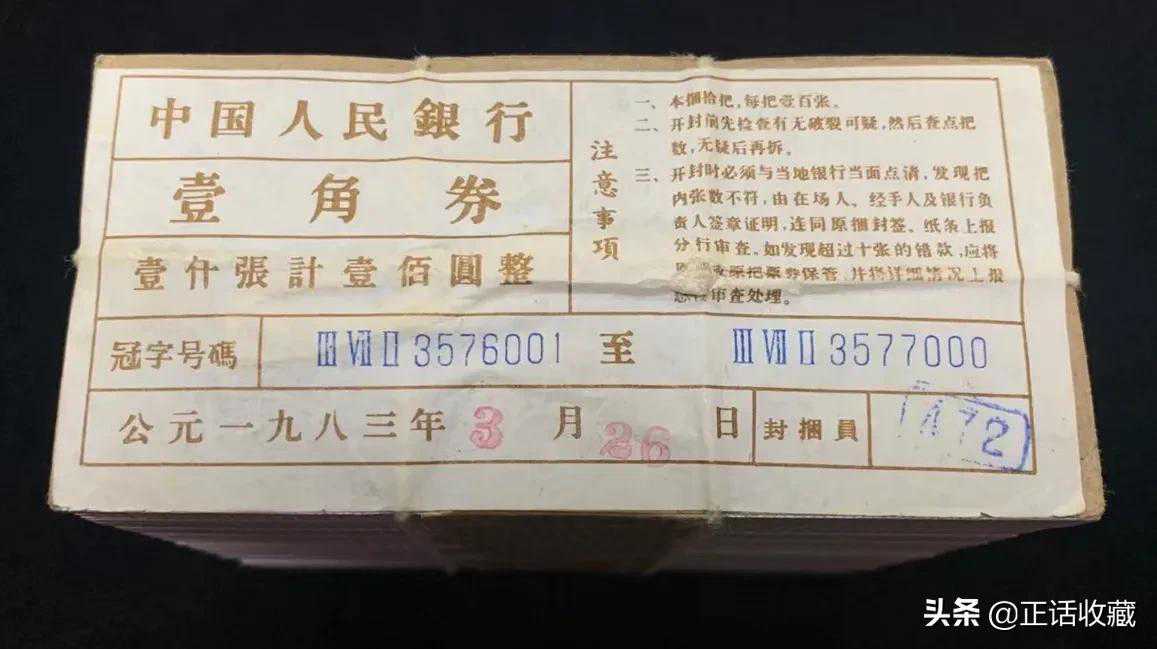 中国人民銀行
壹角券
壹仟張計壹佰圓整
注意事項
一、本捆拾把，每把壹百张。
二、开封前先检查有无破裂可疑，然后查点把
数，无疑后再拆。
三、开封时必须与当地银行当面点清，发现把
内张数不符，由在场人、经手人及银行负
责人签章证明，连同原捆封签、纸条上报
分行审查。如发现超过十张的错款，应将
原把票券保管，并将详细情况上报
审查处理。
冠字号碼
ⅢⅦⅡ3576001 至 ⅢⅦⅡ3577000
公元一九八三年 3 月 26 日
封捆員
472
头条 @正话收藏